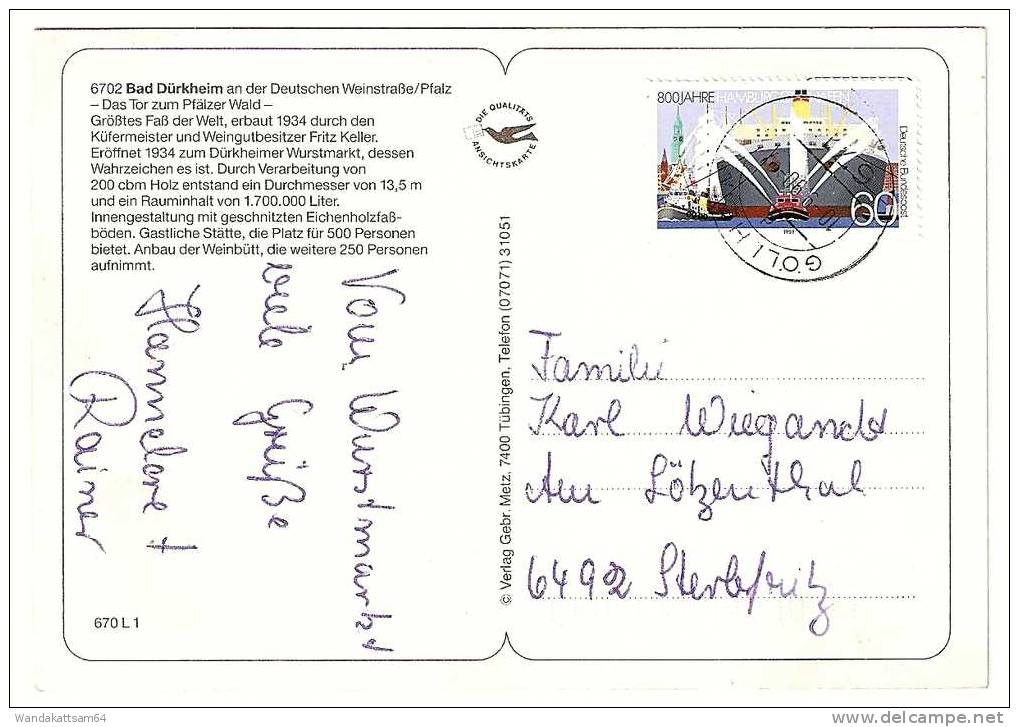 6702 Bad Dürkheim an der Deutschen Weinstraße/Pfalz
– Das Tor zum Pfälzer Wald –
Größtes Faß der Welt, erbaut 1934 durch den
Küfermeister und Weingutbesitzer Fritz Keller.
Eröffnet 1934 zum Dürkheimer Wurstmarkt, dessen
Wahrzeichen es ist. Durch Verarbeitung von
200 cbm Holz entstand ein Durchmesser von 13,5 m
und ein Rauminhalt von 1.700.000 Liter.
Innengestaltung mit geschnitzten Eichenholzfaß-
böden. Gastliche Stätte, die Platz für 500 Personen
bietet. Anbau der Weinbütt, die weitere 250 Personen
aufnimmt.
Vom Wurstmarkt
viele Grüße
Hannelore +
Rainer
670 L 1
DIE QUALITÄTS
ANSICHTSKARTE
© Verlag Gebr. Metz, 7400 Tübingen, Telefon (07071) 31051
800 JAHRE HAMBURGER HAFEN
Deutsche Bundespost
60
1989
GÖLLH
Familie
Karl Wiegand
Am Lötzenthal
6492 Sterbfritz
Wandakattsam64
www.delcampe.net